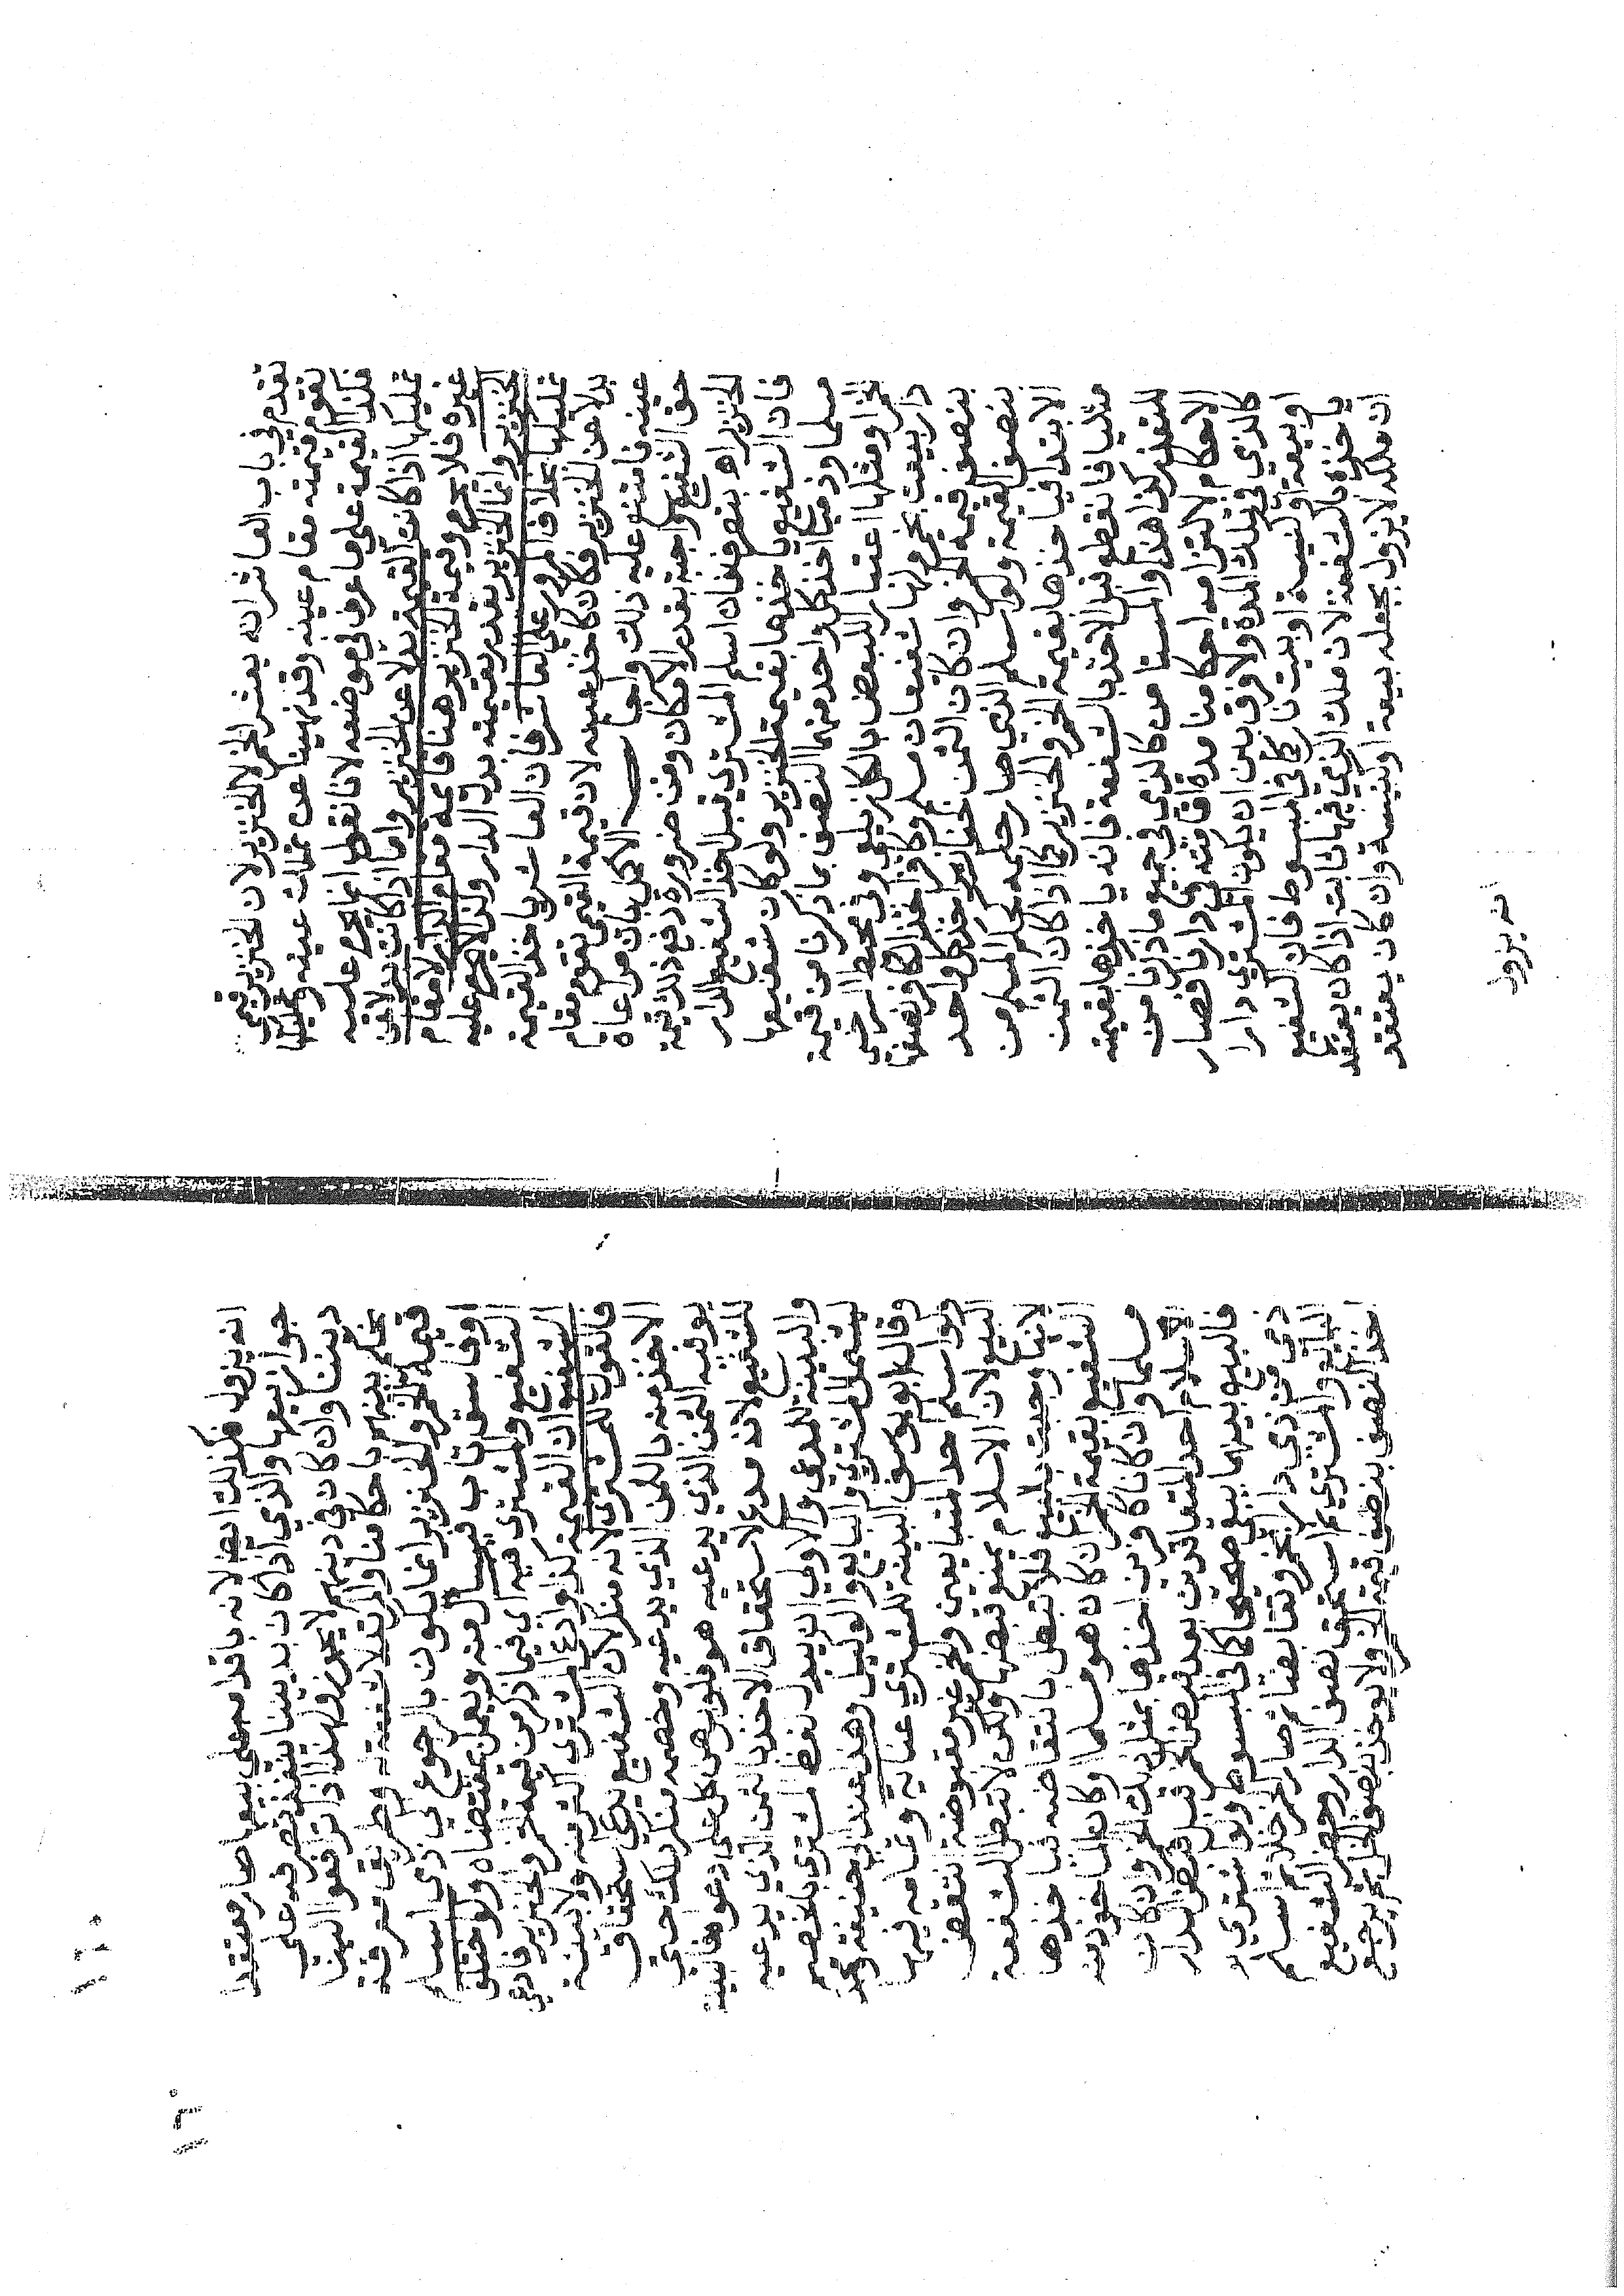 تقدم في باب العاشر انه يعشر الخمر لا الخنزير لان الخنزير قيمي
تقوم قيمته مقام عينه وقد نهينا عن تملك عينه وتمليكها
فكذا القيمة على ما عرف في موضعه لانا نقول انما يحرم عليه
تمليكها اذا كانت القيمة بدلا عن الخنزير واما اذا كانت بدلا عن
غيره فلا يحرم وقيمة الخنزير هنا قائمة مقام الدار لا مقام
الخنزير وانما الخنزير يقدر بقيمته بدل الدار ولذا لا يحرم عليه
تمليكها بخلاف المرور على العاشر فان العاشر ياخذ القيمة
بدلا عن الخنزير فكان كاخذ عينه لان قيمة القيمي تقوم مقام
عينه فامتنع عليه ذلك واجاب الاكمل بان مراعاة
حق الشفيع واجبة بقدر الامكان ومن ضرورة دفع ذلك قيمة
الخنزير اه بتصرف فان اسلم المشتري قبل اخذ الشفيع الدار
فان الشفيع ياخذها بقيمة الخنزير ولو كان شفيعها
مسلما وذميا اخذ كل واحد منهما النصف بما ذكرنا من قيمة
خمر او مثلها اعتبارا للبعض بالكل زيلعي وفي محيط السرخسي
دار بيعت بخمر ولها شفيعان مسلم وكافر اخذ الكافر نصفها
بنصف قيمة الخمر وان كان الثمن خنازير اخذ كل واحد
بنصف القيمة ولو اسلم الذي صار حكمه حكم المسلم من
الابتدا فياخذها بقيمة الخمر والخنزير كما اذا كان الثمن
مثليا فانقطع قبل الاخذ بالشفعة فانه ياخذها بقيمته
للتعذر كذا هذا والمستامن كالذمي في جميع ما ذكرنا من
الاحكام لالتزامه احكامنا مدة اقامته في دارنا فصار
كالذمي في تلك المدة ولا فرق بين ان يكون المشتري دارا
او بيعة او كنيسة او بيت نار كما في المبسوط فان الشفيع
ياخذه بالشفعة لان ملك الذمي فيها ثابت اذا كان يعتقد
ان ملكه لا يزول بجعله بيعة او كنيسة وان كان يعتقد
انه يزول
انه يزول فكذلك ايضا لانه باقدامه على بيعها صار معتقدا
جواز بيعها والذمي اذا كان بديننا تنفذ تصرفه على
ديننا وان كان في دينهم لا يجوز ولهذا اذا ترافعوا الينا
نحكم بينهم باحكامنا والمرتد لا شفعة له وطريق معرفة
قيمة الخمر والخنزير انما يكون بالرجوع الى ذمي اسلم
او فاسق تاب فيسال منه ويعمل بمقتضاه ولو اختلف
الشفيع والمشتري فيه اي فيما ذكر من قيمة الخمر والخنزير فادعى
الشفيع ان القيمة كذا وادعى المشتري اكثر منه ولا بينة
فالقول للمشتري لانه منكر لان الشفيع يدعي استحقاق
الاخذ منه بالثمن الذي يدعيه وخصمه منكر ذلك حتى
يوفيه الثمن الذي يدعيه هو فلو برهن كل على دعواه فالبينة
للشفيع لانه مدع لاستحقاق الاخذ بالثمن الذي يدعيه
والبينة للمدعي والاولى ان يبدل لفظ المشتري بالخصم
ليشمل المشتري والبايع والوكيل وهذا عند ابي حنيفة ومحمد
وقال ابو يوسف البينة للمشتري عناية وتمامه فيها
ولو اسلم احد المتبايعين والخمر غير مقبوضة انتقض
البيع لان الاسلام يمنع قبضها ولكن لا تبطل الشفعة
لانها وجبت بالبيع فلا تبطل بانتقاضه فياخذها
الشفيع بقيمة الخمر ان كان هو مسلما او كان الماخوذ منه
مسلما وان كانا كافرين اخذها بمثل ذلك الخمر وان كان
الاسلام احد المتعاقدين بعد قبض الخمر قبل قبض الدار
فالبيع بينهما يبقى صحيحا كما في المبسوط ولو اشترى
ذمي من ذمي دارا بخمر وتقابضا ثم صار الخمر خلا ثم اسلم
البايع او المشتري ثم استحق نصف الدار وحضر الشفيع
اخذ النصف بنصف قيمة الخمر ولا ياخذ بنصف الخل ثم يرجع